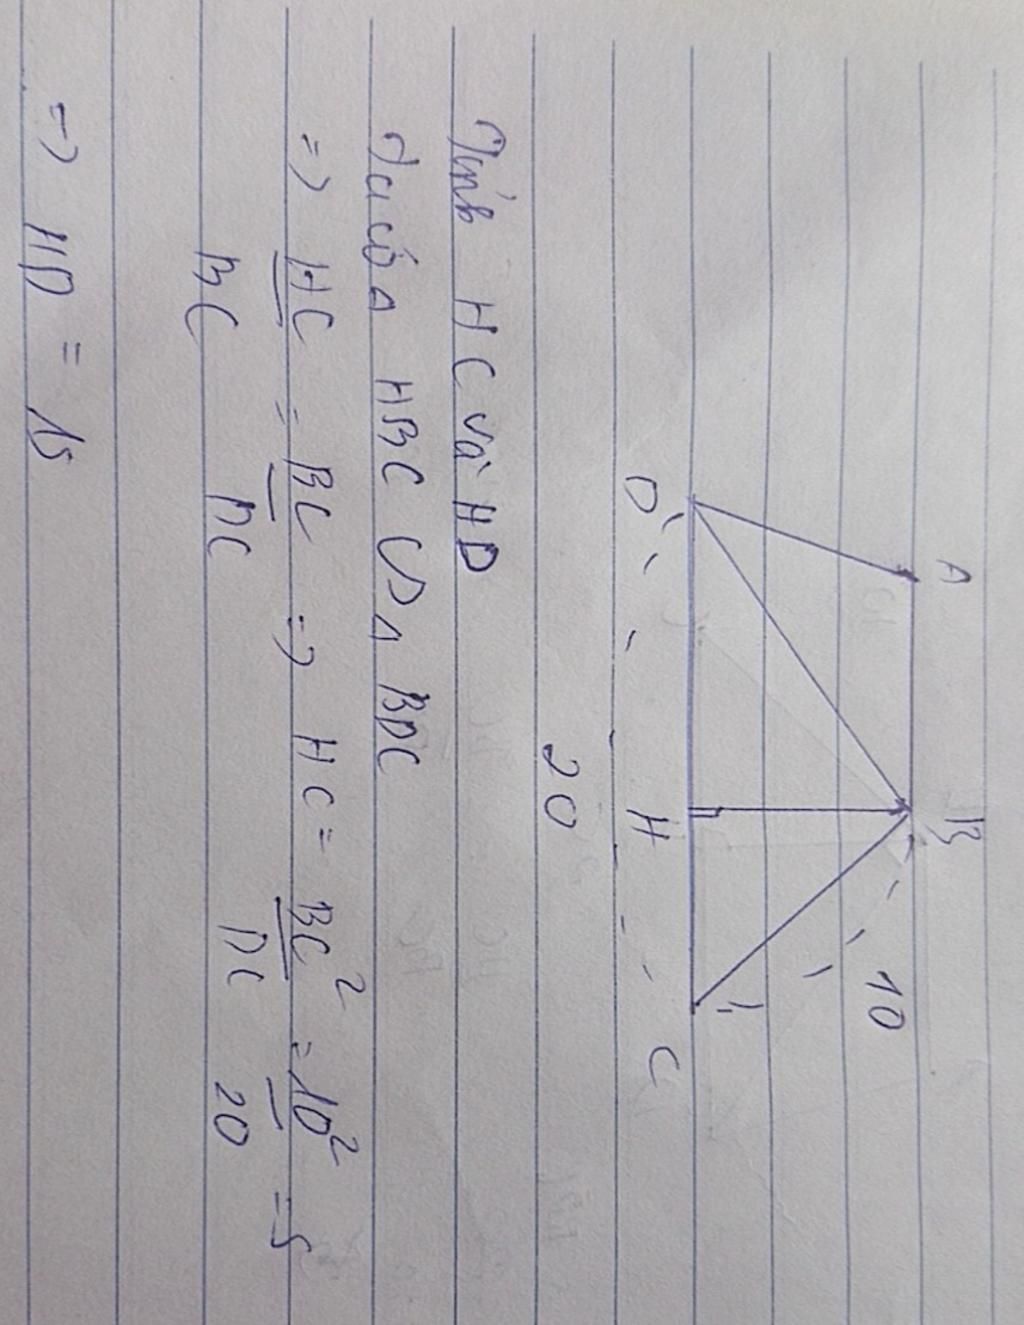 A B
10
D H C
20
Tính HC và HD
Ta có Δ HBC ∽ Δ BDC
=> HC/BC = BC/DC => HC = BC²/DC = 10²/20 = 5
=> HD = 15